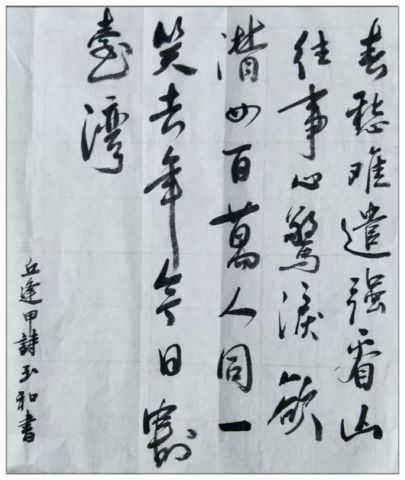 春愁难遣强看山
往事心驚淚欲
潸四百萬人同一
哭去年今日割
臺湾
丘逢甲詩玉和書